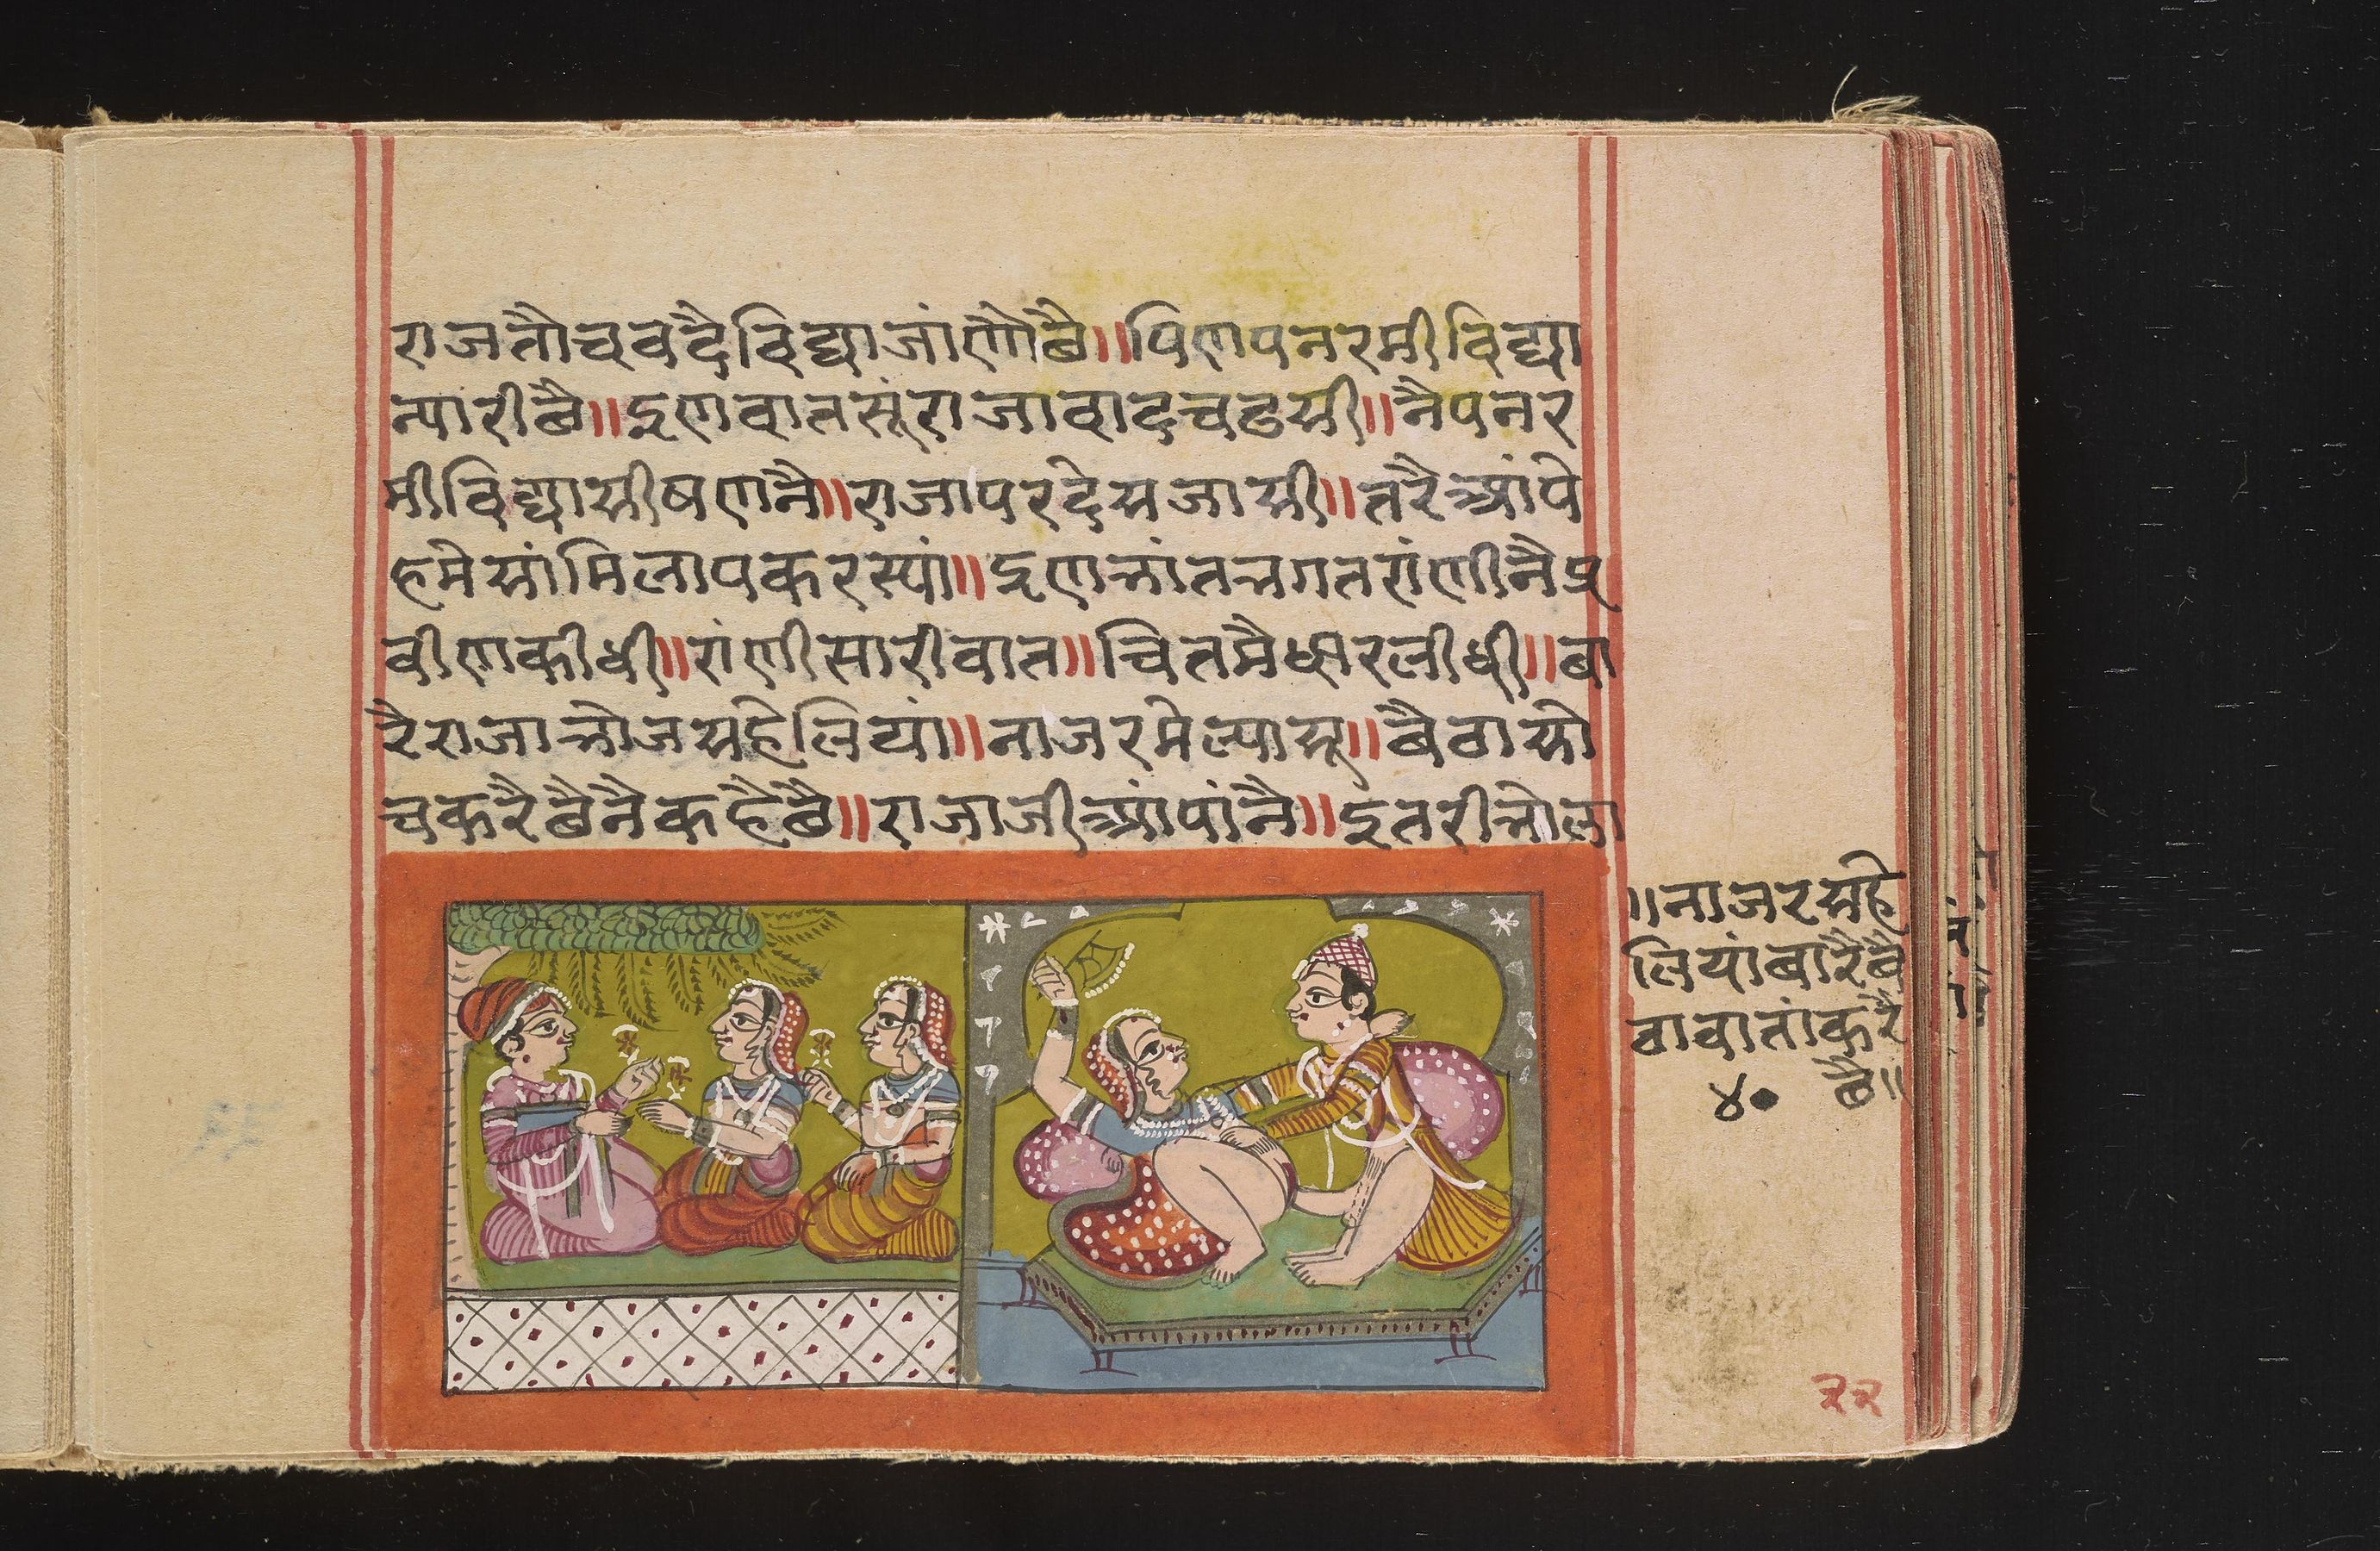 राजतौचवदैविद्याजांणैछै॥पिणपनरमीविद्या
न्यारीछै॥इणवातसूंराजावादचढसी॥नैपनर
मीविद्यासीषणनै॥राजापरदेसजासी॥तरैआंपे
हमेसांमिलापकरस्यां॥इणभांतभगतरांणीनैप्र
वीणकीधी॥रांणीसारीवात॥चितमैधारलीधी॥बा
रैराजाभोजसहेलियां॥नाजरमेल्यासू॥बैठासो
चकरैछैनैकहैछै॥राजाजीआंपांनै॥इतरीभोला
॥नाजरसहे
लियांबारैबै
ठावातांकरै
छै॥
४०
२२